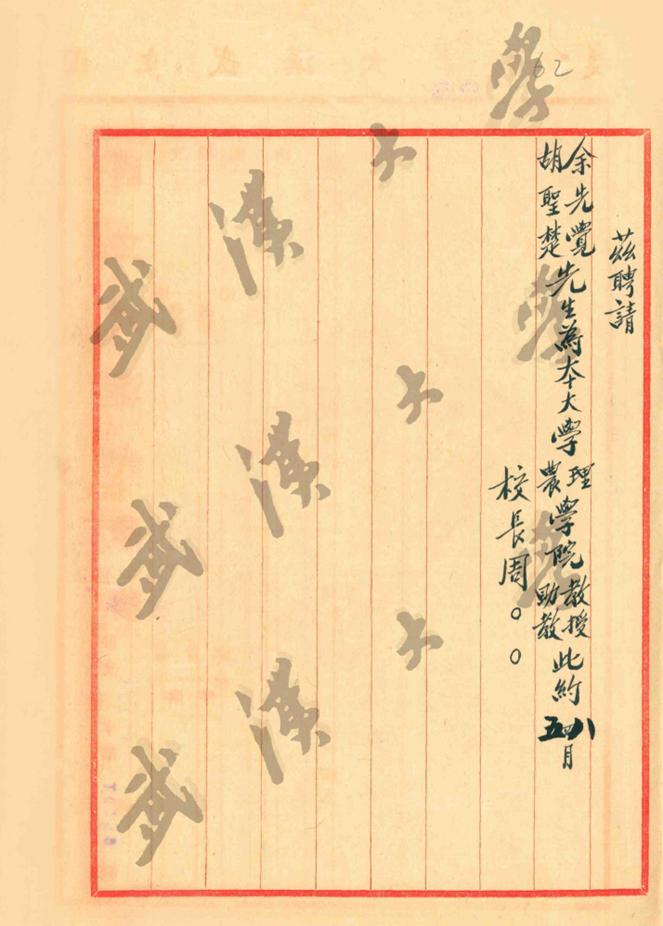 62
茲聘請
余先覺
胡聖楚
先生為本大學
理
農
學院
教授
助教
此約
八
五
月
校長周〇〇
武漢大學
武漢大學
武漢大學